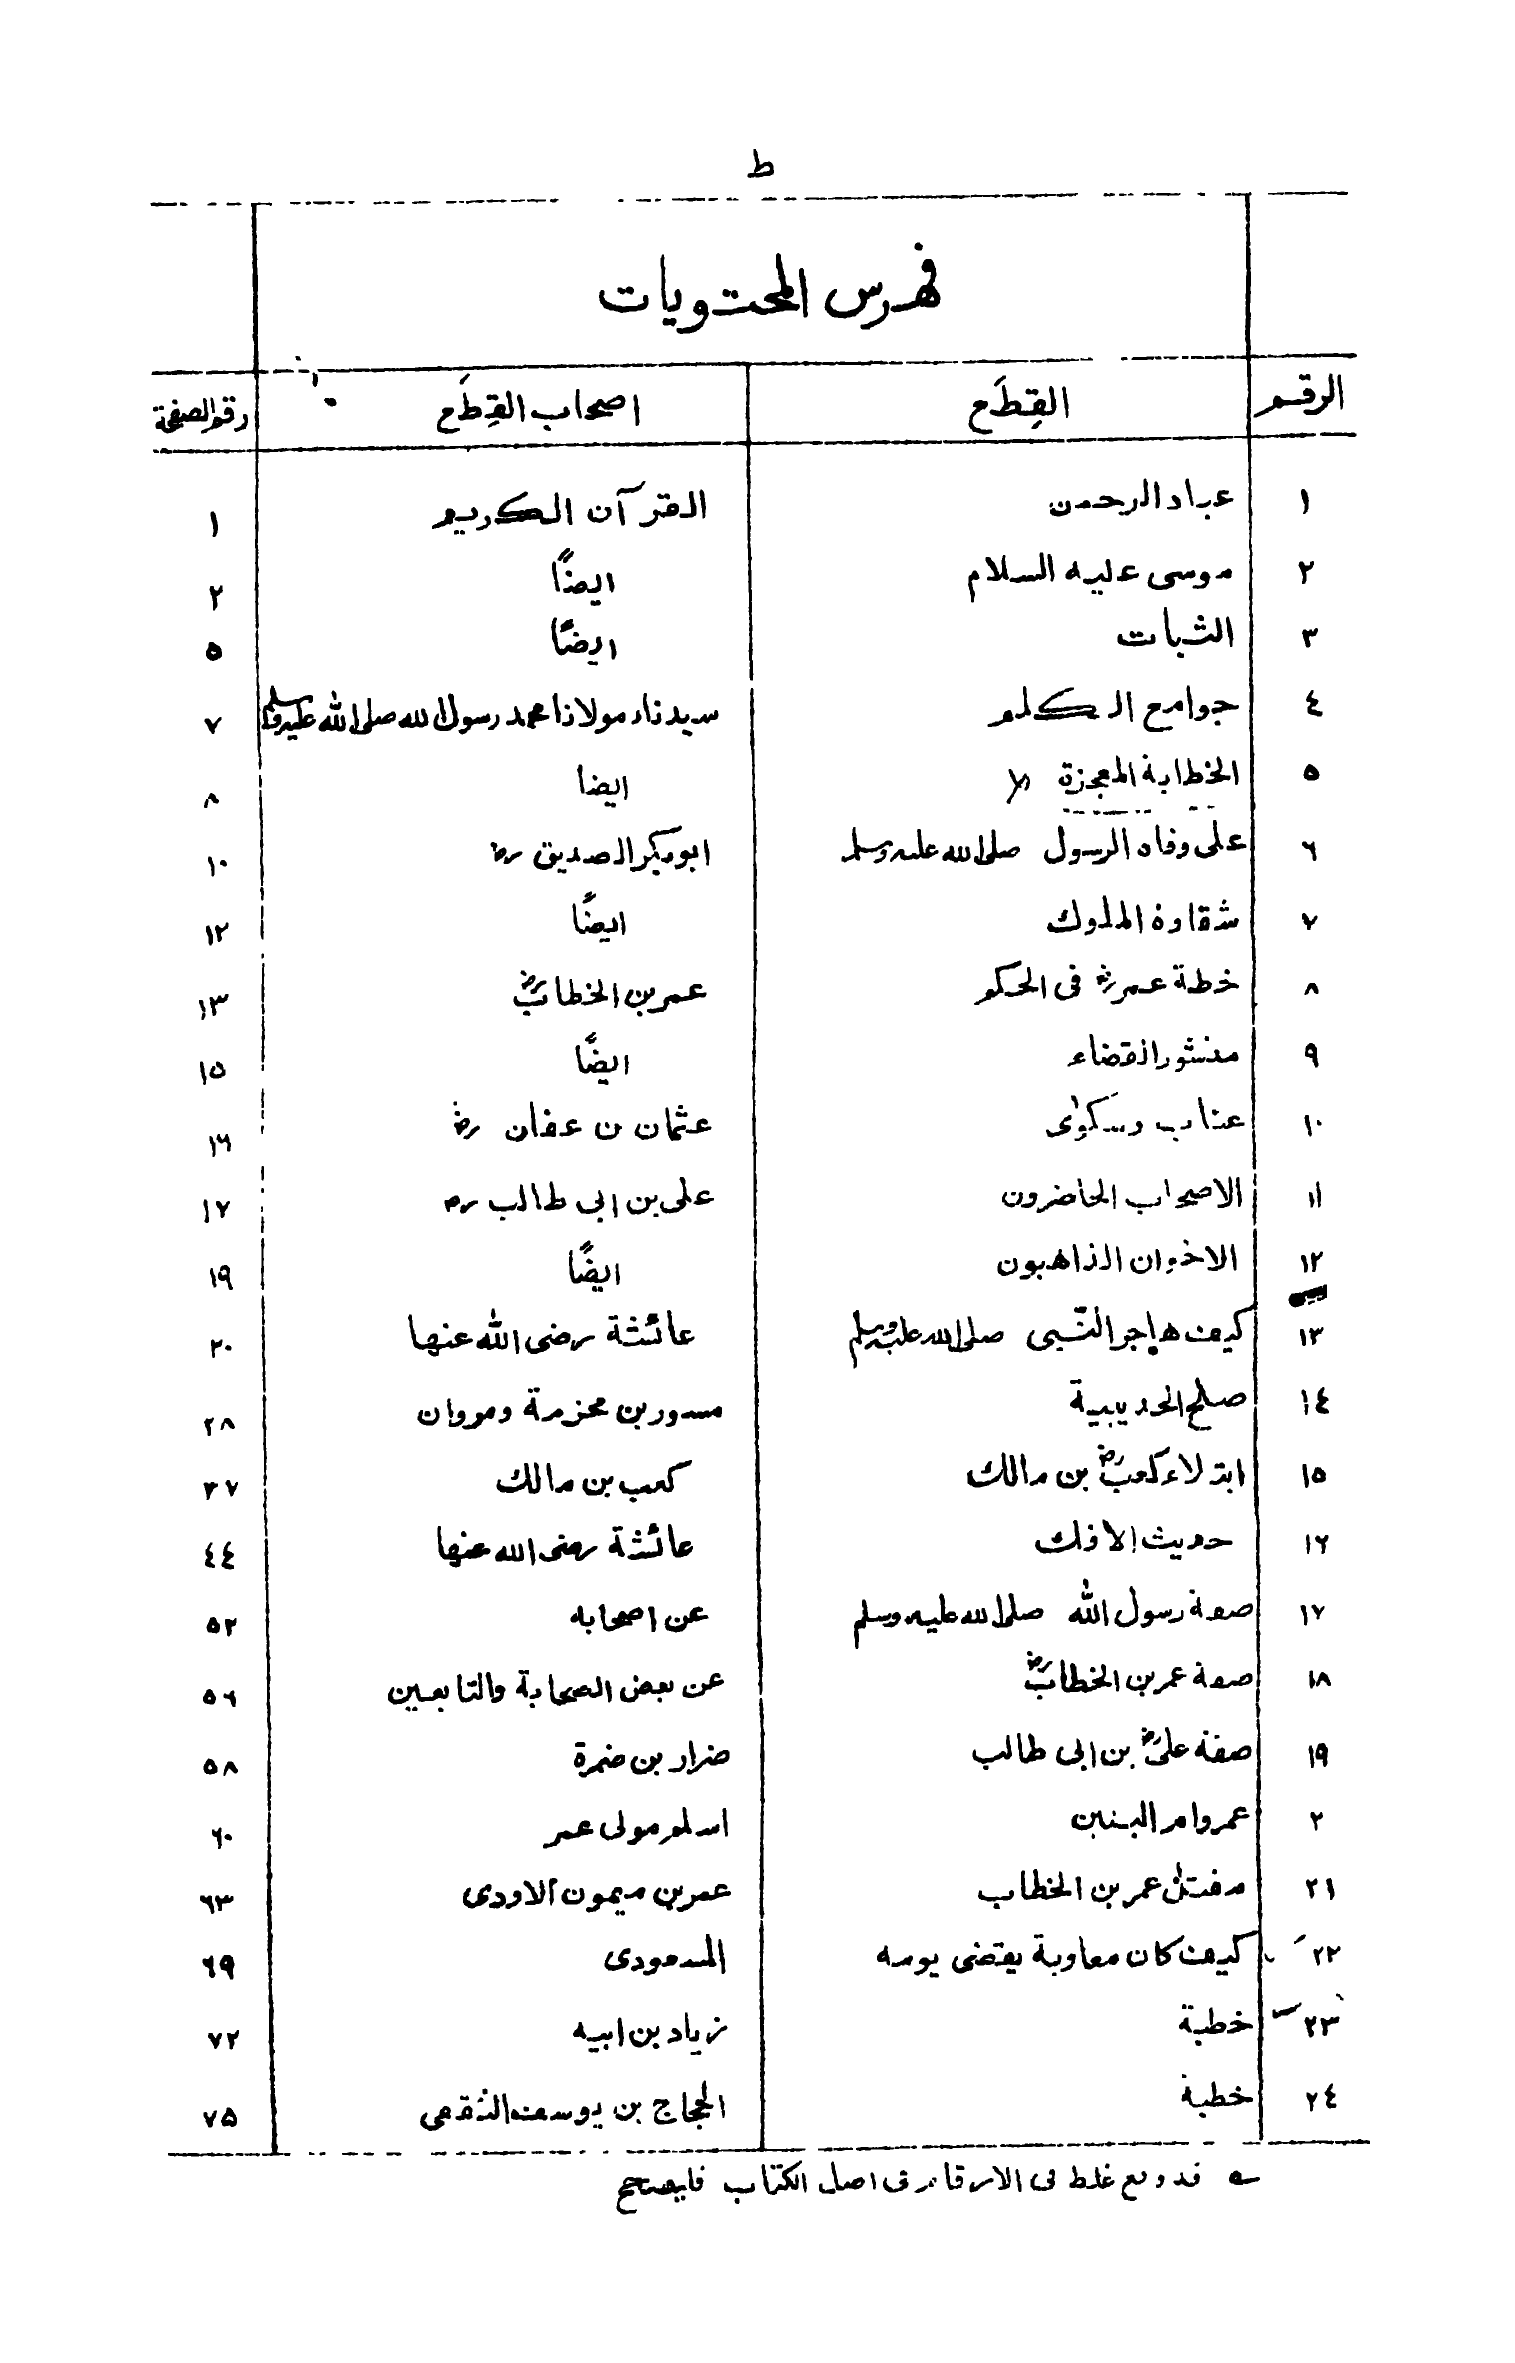 ط
فهرس المحتويات
الرقم القِطَع اصحاب القِطَع رقم الصفحة
١ عباد الرحمن القرآن الكريم ١
٢ موسى عليه السلام ايضًا ٢
٣ الثبات ايضًا ٥
٤ جوامع الكلم سيدنا و مولانا محمد رسول الله صلى الله عليه وسلم ٧
٥ الخطابة المعجزة ايضا ٨
٦ على وفاه الرسول صلى الله عليه وسلم ابوبكر الصديق رض ١٠
٧ شقاوة الملوك ايضًا ١٢
٨ خطة عمر رض فى الحكم عمر بن الخطاب رض ١٣
٩ منشور القضاء ايضًا ١٥
١٠ عتاب وشكوى عثمان بن عفان رض ١٦
١١ الاصحاب الحاضرون على بن ابى طالب رض ١٧
١٢ الاخوان الذاهبون ايضًا ١٩
١٣ كيف هاجر النّبى صلى الله عليه وسلم عائشة رضى الله عنها ٢٠
١٤ صلح الحديبية مسور بن مخزمة ومروان ٢٨
١٥ ابتلاء كعب رض بن مالك كعب بن مالك ٣٧
١٦ حديث الافك عائشة رضى الله عنها ٤٤
١٧ صفة رسول الله صلى الله عليه وسلم عن اصحابه ٥٢
١٨ صفة عمر بن الخطاب رض عن بعض الصحابة والتابعين ٥٦
١٩ صفة على رض بن ابى طالب ضرار بن ضمرة ٥٨
٢ عمر وام البنين اسلم مولى عمر ٦٠
٢١ مقتل عمر بن الخطاب عمر بن ميمون الاودى ٦٣
٢٢ كيف كان معاوية يقتضى يومه المسعودى ٦٩
٢٣ خطبة زياد بن ابيه ٧٢
٢٤ خطبة الحجاج بن يوسف الثقفى ٧٥
قد وقع غلط فى الارقام فى اصل الكتاب فليصحح